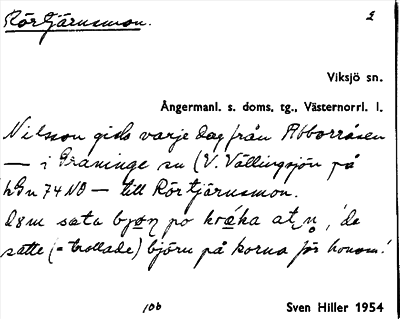 Rörtjärnsmon. 2
Viksjö sn.
Ångermanl. s. doms. tg., Västernorrl. l.
Nilsson gick varje dag från Abborråsen
— i Graninge sn (V. Vällingsjön på
hGn 74 NB — till Rörtjärnsmon.
sata po at , 'de
satte (= trollade) björn på korna för honom.'
106 Sven Hiller 1954